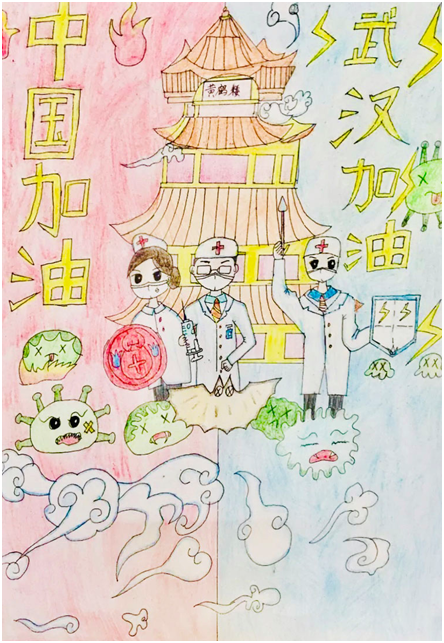 中国加油
黄鹤楼
武汉加油